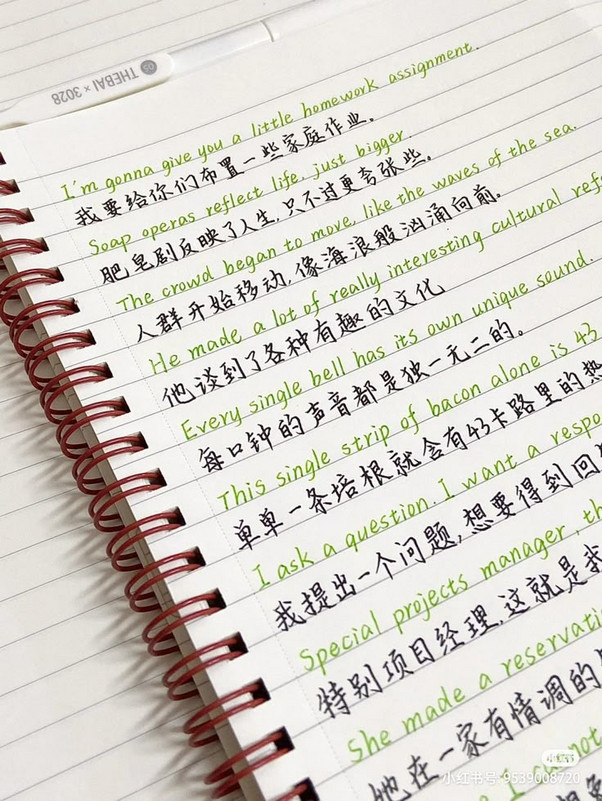 THEBAI × 3028
I'm gonna give you a little homework assignment.
我要给你们布置一些家庭作业。
Soap operas reflect life, just bigger.
肥皂剧反映了人生,只不过更夸张些。
The crowd began to move, like the waves of the sea.
人群开始移动,像海浪般汹涌向前。
He made a lot of really interesting cultural refe
他谈到了各种有趣的文化
Every single bell has its own unique sound.
每口钟的声音都是独一无二的。
This single strip of bacon alone is 43
单单一条培根就含有43卡路里的热
I ask a question, I want a respo
我提出一个问题,想要得到回
Special projects manager, th
特别项目经理,这就是我
She made a reservati
她在一家有情调的
I
not
小红书
小红书号:9539008720